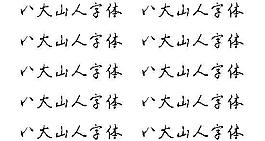 八大山人字体 八大山人字体
八大山人字体 八大山人字体
八大山人字体 八大山人字体
八大山人字体 八大山人字体
八大山人字体 八大山人字体